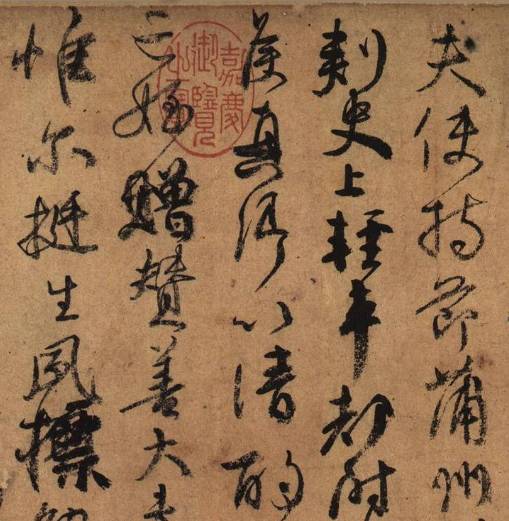 夫使持節蒲州
刺史上輕車都尉
真卿以清酌
亡姪贈贊善大夫
惟尔挺生夙標
嘉慶御覽之寶